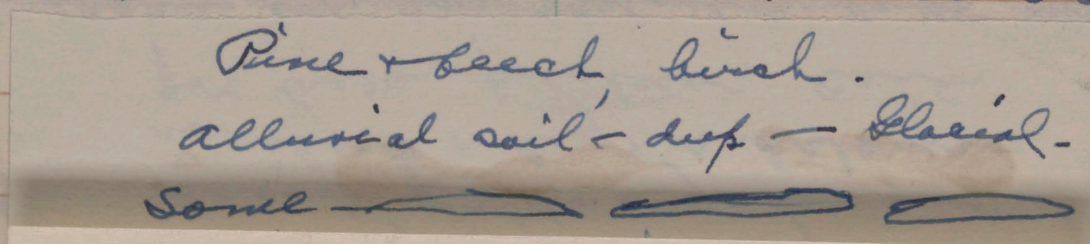 Pine + beech, birch.
alluvial soil - deep - Glacial -
Some